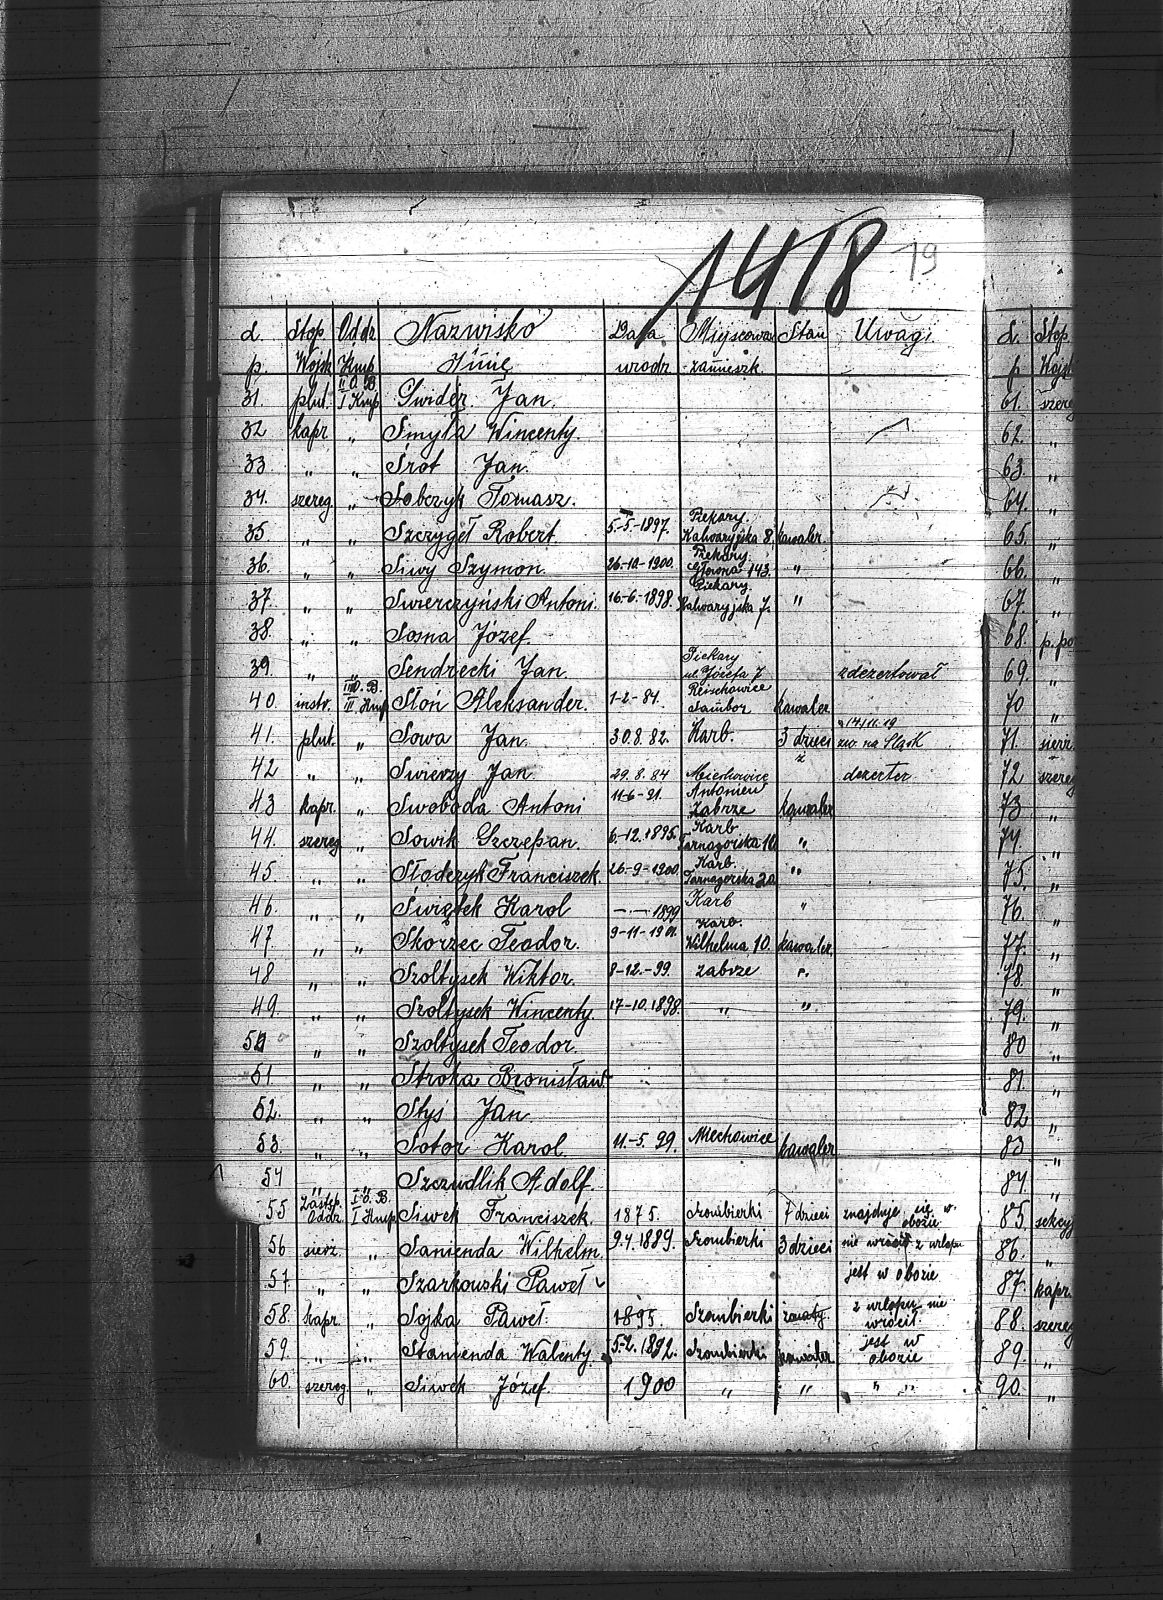 1418 19
L. Stop. Oddz. Nazwisko Data Miejscowość Stan Uwagi L. Stop.
p. Wojsk Kmp Imię urodz. zamieszk. p. Wojsk
31. plut. II O. B. I Kmp Świder Jan. 61. szereg
32 kapr. „ Śmyła Wincenty. 62. „
33. „ „ Śrot Jan. 63. „
34. szereg. „ Sobczyk Tomasz. 64. „
35 „ „ Szczygieł Robert 5.-5.-1897. Piekary. Kalwaryjska 8. kawaler. 65. „
36. „ „ Siwy Szymon. 26.-10.-1900. Piekary. Głowna 143. „ 66. „
37. „ „ Świerczyński Antoni. 16.-6.-1898. Piekary. Kalwaryjska 7. „ 67. „
38. „ „ Sosna Józef. 68. p. po
39. „ „ Sendrecki Jan. Piekary ul. Józefa 7 zdezertował 69. „
40. instr. III O. B. III Kmp Słoń Aleksander. 1-2.-84. Sambor kawaler 70 „
41. plut. „ Sowa Jan. 30.8.82. Karb. 3 dzieci 14.11.19 zw. na Śląsk 71. sierz.
42 „ „ Swierzy Jan. 29.8.84 Miechowice 2 dezerter 72 szereg
43 kapr. „ Swoboda Antoni 11-6.-91. Zabrze kawaler 73 „
44. szereg „ Sowik Szczepan. 6.-12.1895. Karb Tarnogórska 10. „ 74. „
45. „ „ Słodczyk Franciszek. 26.-9.-1900. Karb. Tarnogórska 20. „ 75. „
46. „ „ Świątek Karol —.—.1899 Karb „ 76. „
47. „ „ Skorzec Teodor. 9-11-1901. Karb. Wilhelma 10. kawaler. 77. „
48 „ „ Szołtysek Wiktor. 8-12.-99. Zabrze „ 78. „
49. „ „ Szołtysek Wincenty. 17-10.1898. „ „ 79. „
50 „ „ Szołtysek Teodor. 80 „
51. „ „ Stroka Bronisław. 81. „
52. „ „ Styś Jan 82 „
53. „ „ Sotor Karol 11.-5.99. Miechowice kawaler 83 „
54 „ „ Szczudlik Adolf. 84. „
55 Zastęp. Oddz. I O. B. I Kmp Siwek Franciszek. 1875. Szombierki 7 dzieci znajduje się w obozie 85. sekcy
56 sierz. „ Sanienda Wilhelm. 9.4.1889. Szombierki 3 dzieci nie wrócił z urlopu 86. „
57. „ „ Szarkowski Paweł jest w obozie 87. kapr.
58. kapr. „ Sojka Paweł. 1895. Szombierki żonaty z urlopu nie wrócił. 88. szereg
59. „ „ Stanienda Walenty. 5-2.1892. Szombierki kawaler jest w obozie 89. „
60. szereg. „ Siwek Józef. 1900 „ „ „ „ 90. „